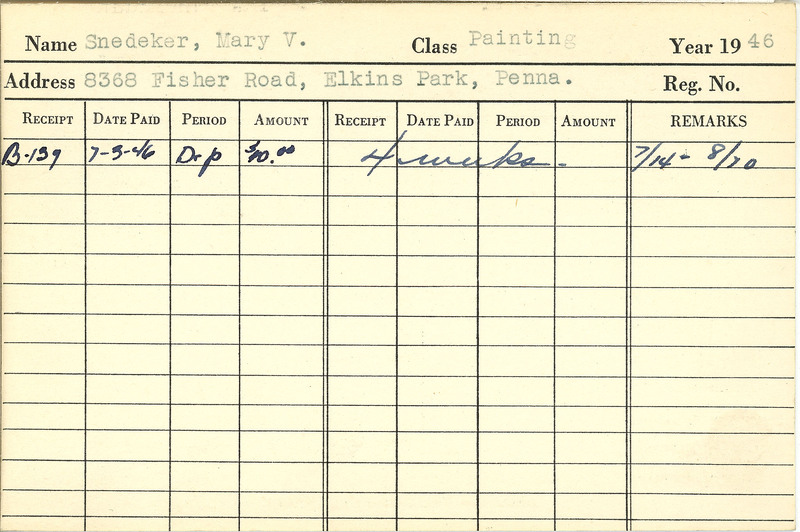 Name Snedeker, Mary V. Class Painting Year 19 46
Address 8368 Fisher Road, Elkins Park, Penna. Reg. No.
RECEIPT DATE PAID PERIOD AMOUNT RECEIPT DATE PAID PERIOD AMOUNT REMARKS
B-139 7-3-46 Dep $10.00 4 weeks - 7/14 - 8/10